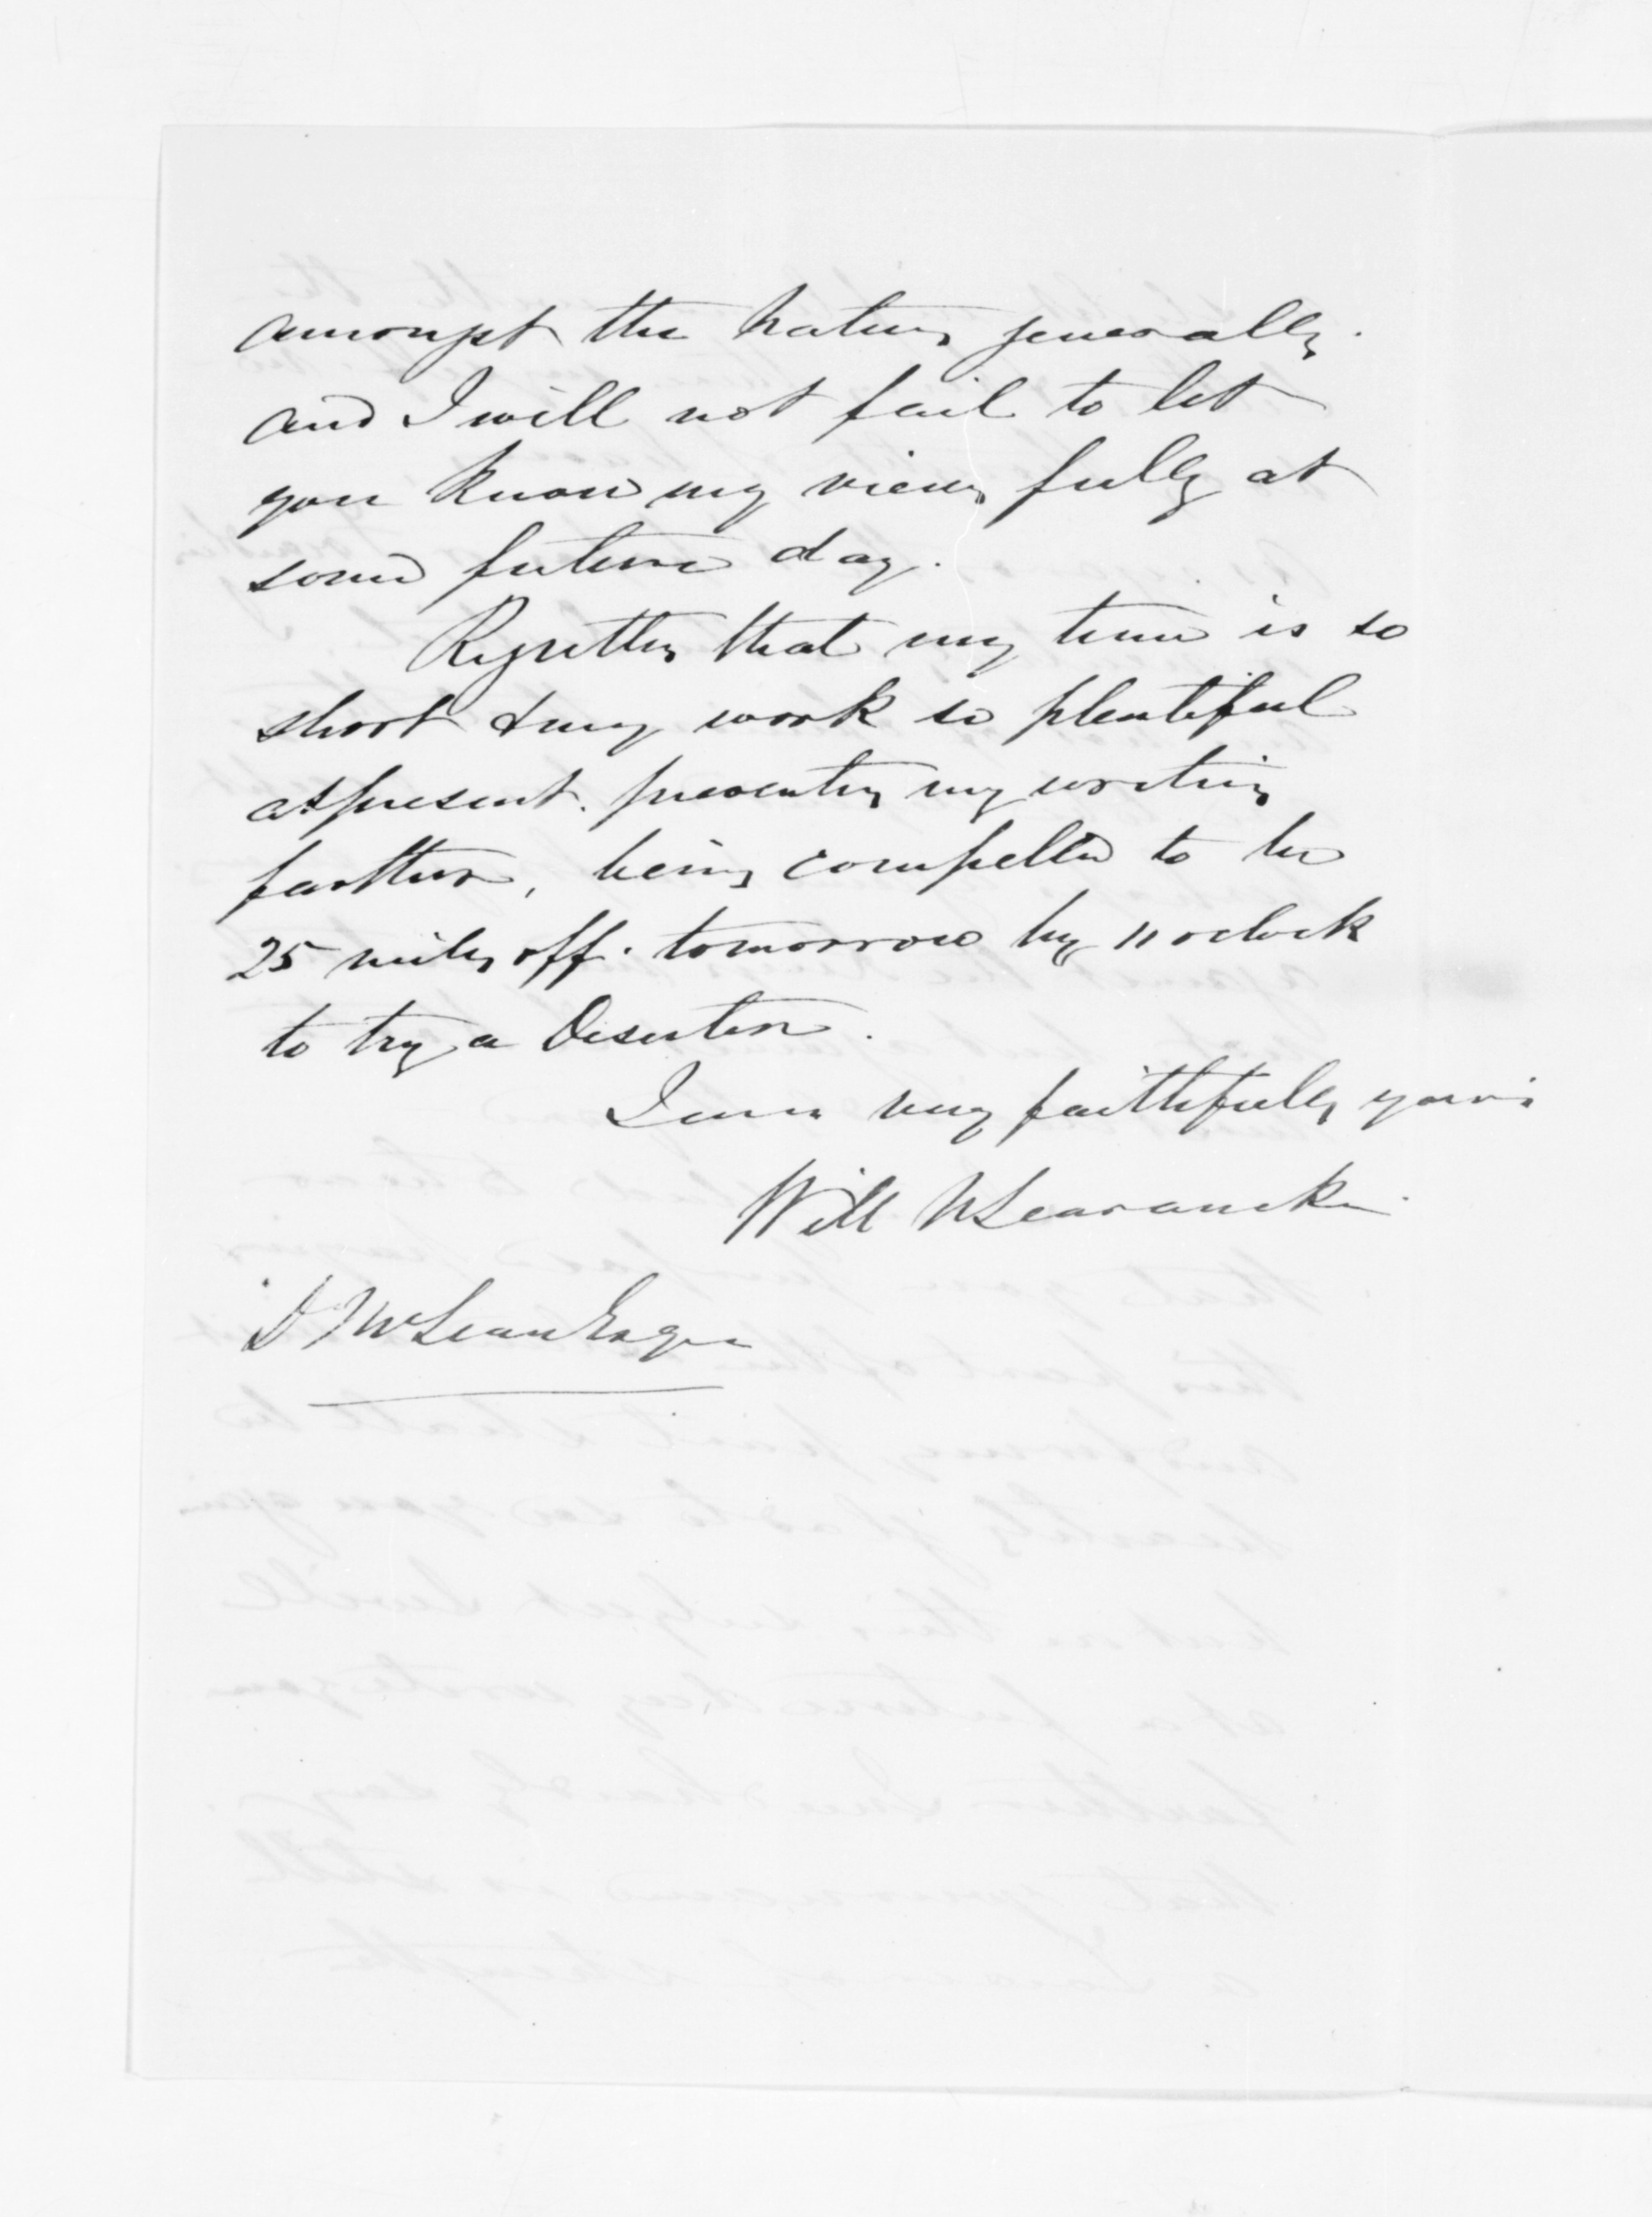 amongst the Natives generally.
and I will not fail to let
you know my views fully at
some future day.
Regretting that my time is so
short & my work so plentiful
at present. preventing my writing
farther, being compelled to be
25 miles off. tomorrow by 11 oclock
to try a Deserter.
I am very faithfully yours
Will N Searancke
D McLean Esqre